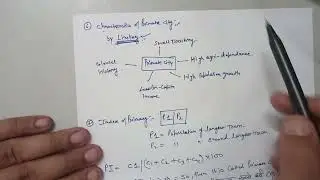 ① Characteristics of Primate city :-
by Linskey
Small Territory
Colonial History
Primate city
High agri-dependence
High Population growth
Low per-Capita Income
② Index of Primacy :- P1/P2
P1 = Population of largest town.
P2 = " " second largest town.
PI = C1/(C1+C2+C3+C4) X100
then it is called Primate